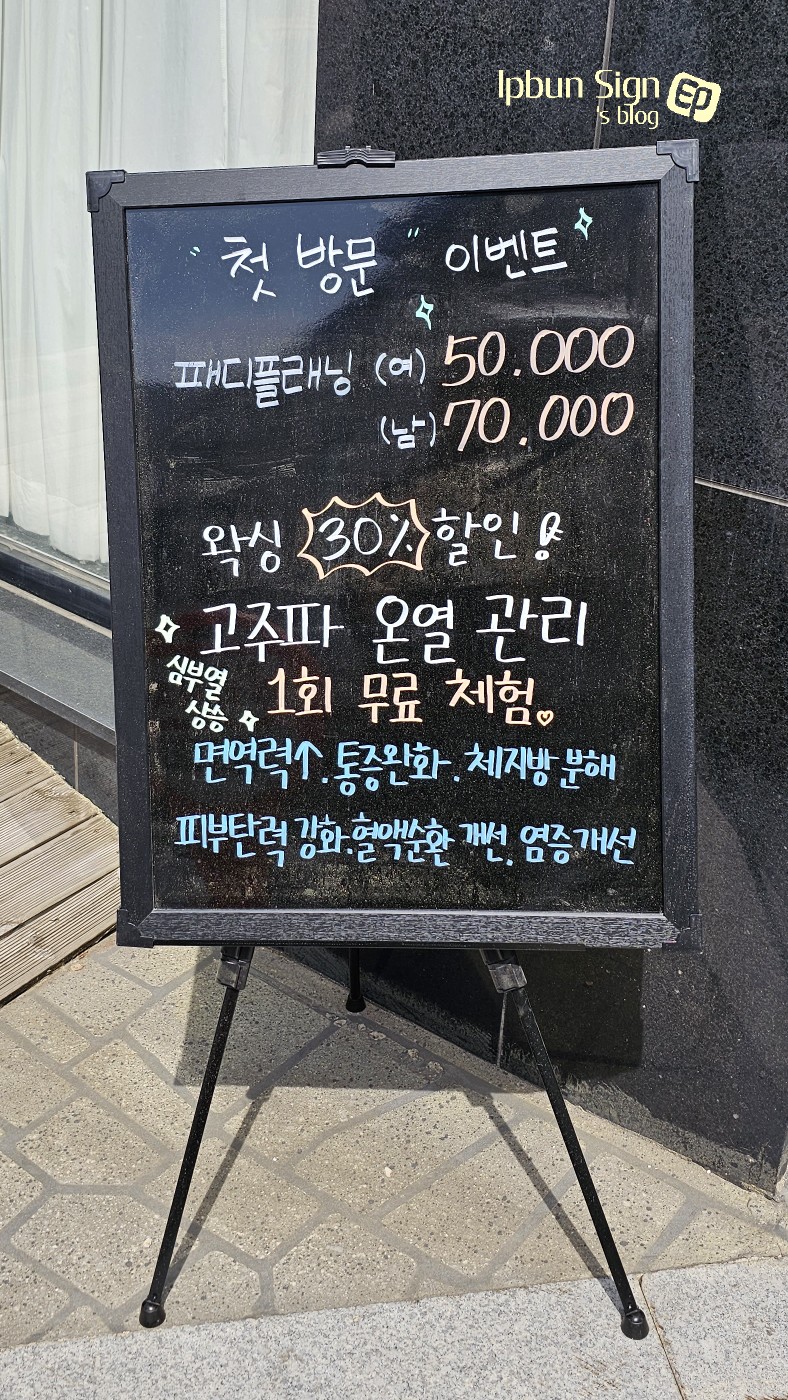 Ipbun Sign
's blog
EP
"첫 방문" 이벤트
패디플래닝 (여) 50.000
(남) 70.000
왁싱 30% 할인!
고주파 온열 관리
심부열
상승
1회 무료 체험
면역력↑. 통증완화. 체지방 분해
피부탄력 강화. 혈액순환 개선. 염증개선